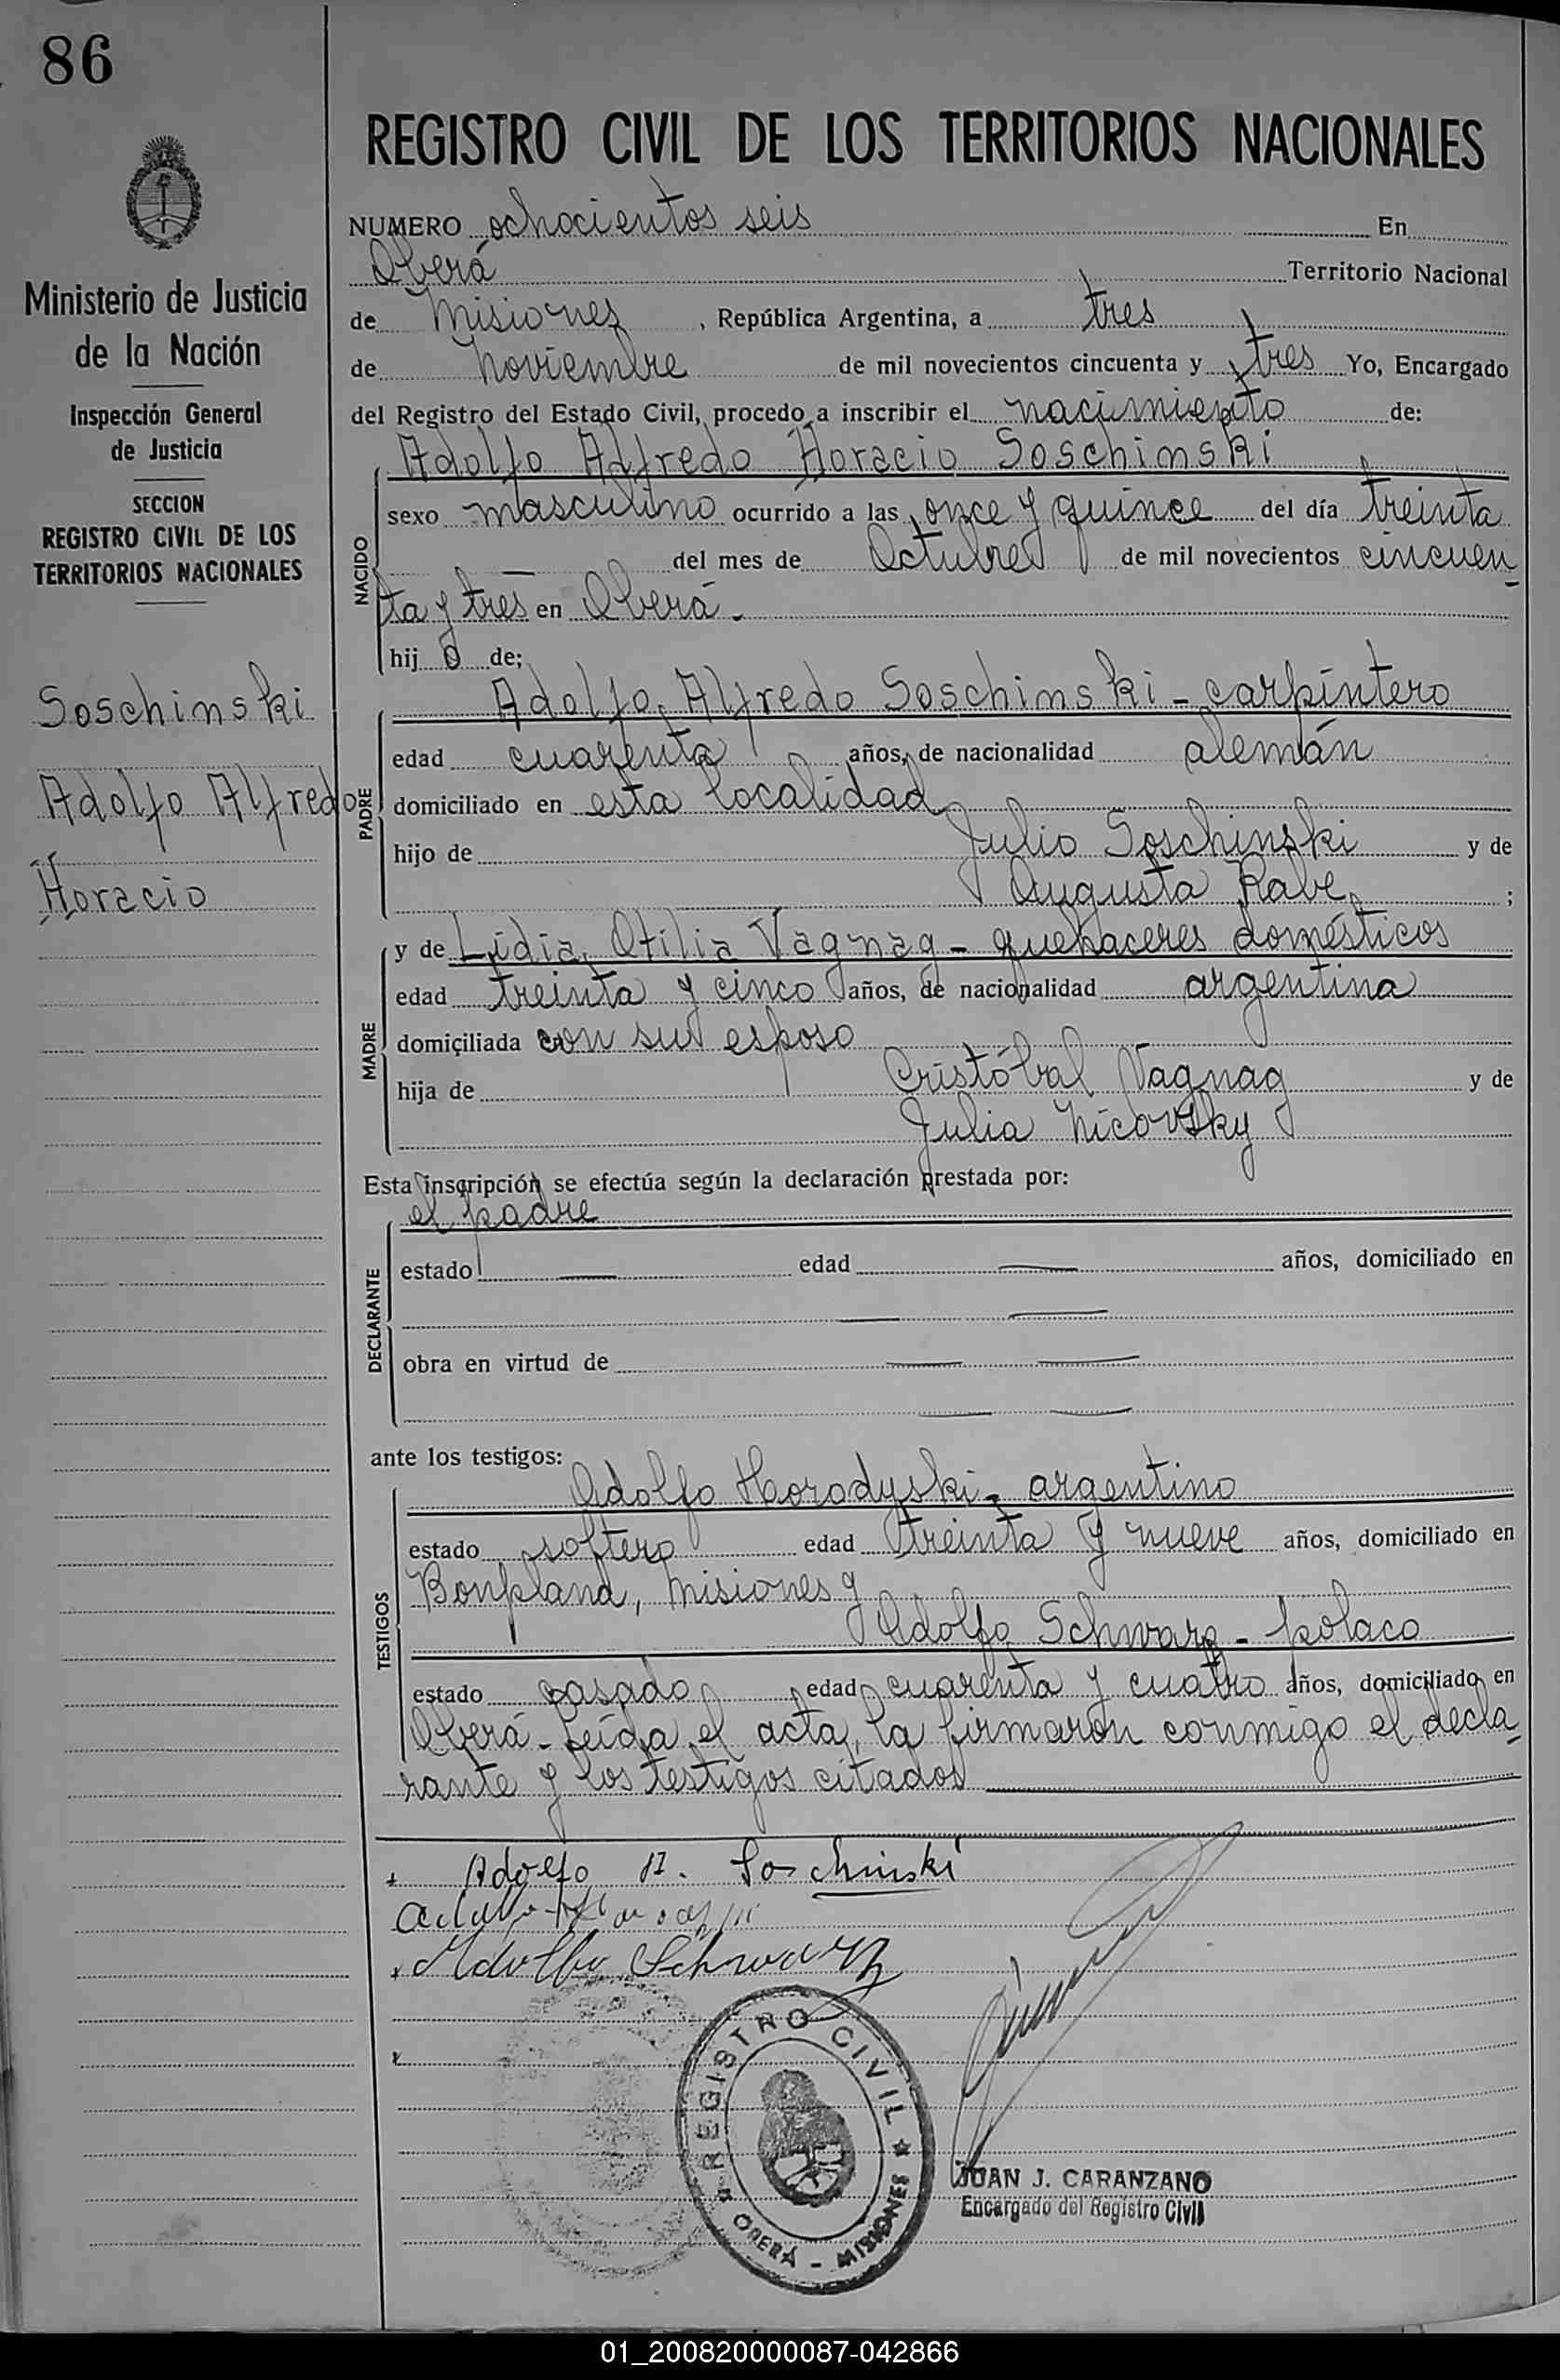 86
Ministerio de Justicia
de la Nación
Inspección General
de Justicia
SECCION
REGISTRO CIVIL DE LOS
TERRITORIOS NACIONALES
Soschinski
Adolfo Alfredo
Horacio
REGISTRO CIVIL DE LOS TERRITORIOS NACIONALES
NUMERO ochocientos seis En
Oberá Territorio Nacional
de Misiones, República Argentina, a tres
de Noviembre de mil novecientos cincuenta y tres Yo, Encargado
del Registro del Estado Civil, procedo a inscribir el nacimiento de:
Adolfo Alfredo Horacio Soschinski
NACIDO
sexo masculino ocurrido a las once y quince del día treinta
— del mes de Octubre de mil novecientos cincuen-
ta y tres en Oberá.
hij o de;
Adolfo Alfredo Soschinski - carpintero
PADRE
edad cuarenta años, de nacionalidad alemán
domiciliado en esta localidad
hijo de Julio Soschinski y de
Augusta Rabe;
MADRE
y de Lidia Otilia Vagnag - quehaceres domésticos
edad treinta y cinco años, de nacionalidad argentina
domiciliada con su esposo
hija de Cristóbal Vagnag y de
Julia Nicovsky
Esta inscripción se efectúa según la declaración prestada por:
el padre
DECLARANTE
estado — edad — años, domiciliado en
— —
obra en virtud de — —
— —
ante los testigos:
Adolfo Horodyski - argentino
TESTIGOS
estado soltero edad treinta y nueve años, domiciliado en
Bonpland, Misiones y
Adolfo Schwarz - polaco
estado casado edad cuarenta y cuatro años, domiciliado en
Oberá - Leída el acta, la firmaron conmigo el decla-
rante y los testigos citados
Adolfo A. Soschinski
Adolfo Schwarz
REGISTRO CIVIL
OBERÁ - MISIONES
JUAN J. CARANZANO
Encargado del Registro Civil
01_200820000087-042866